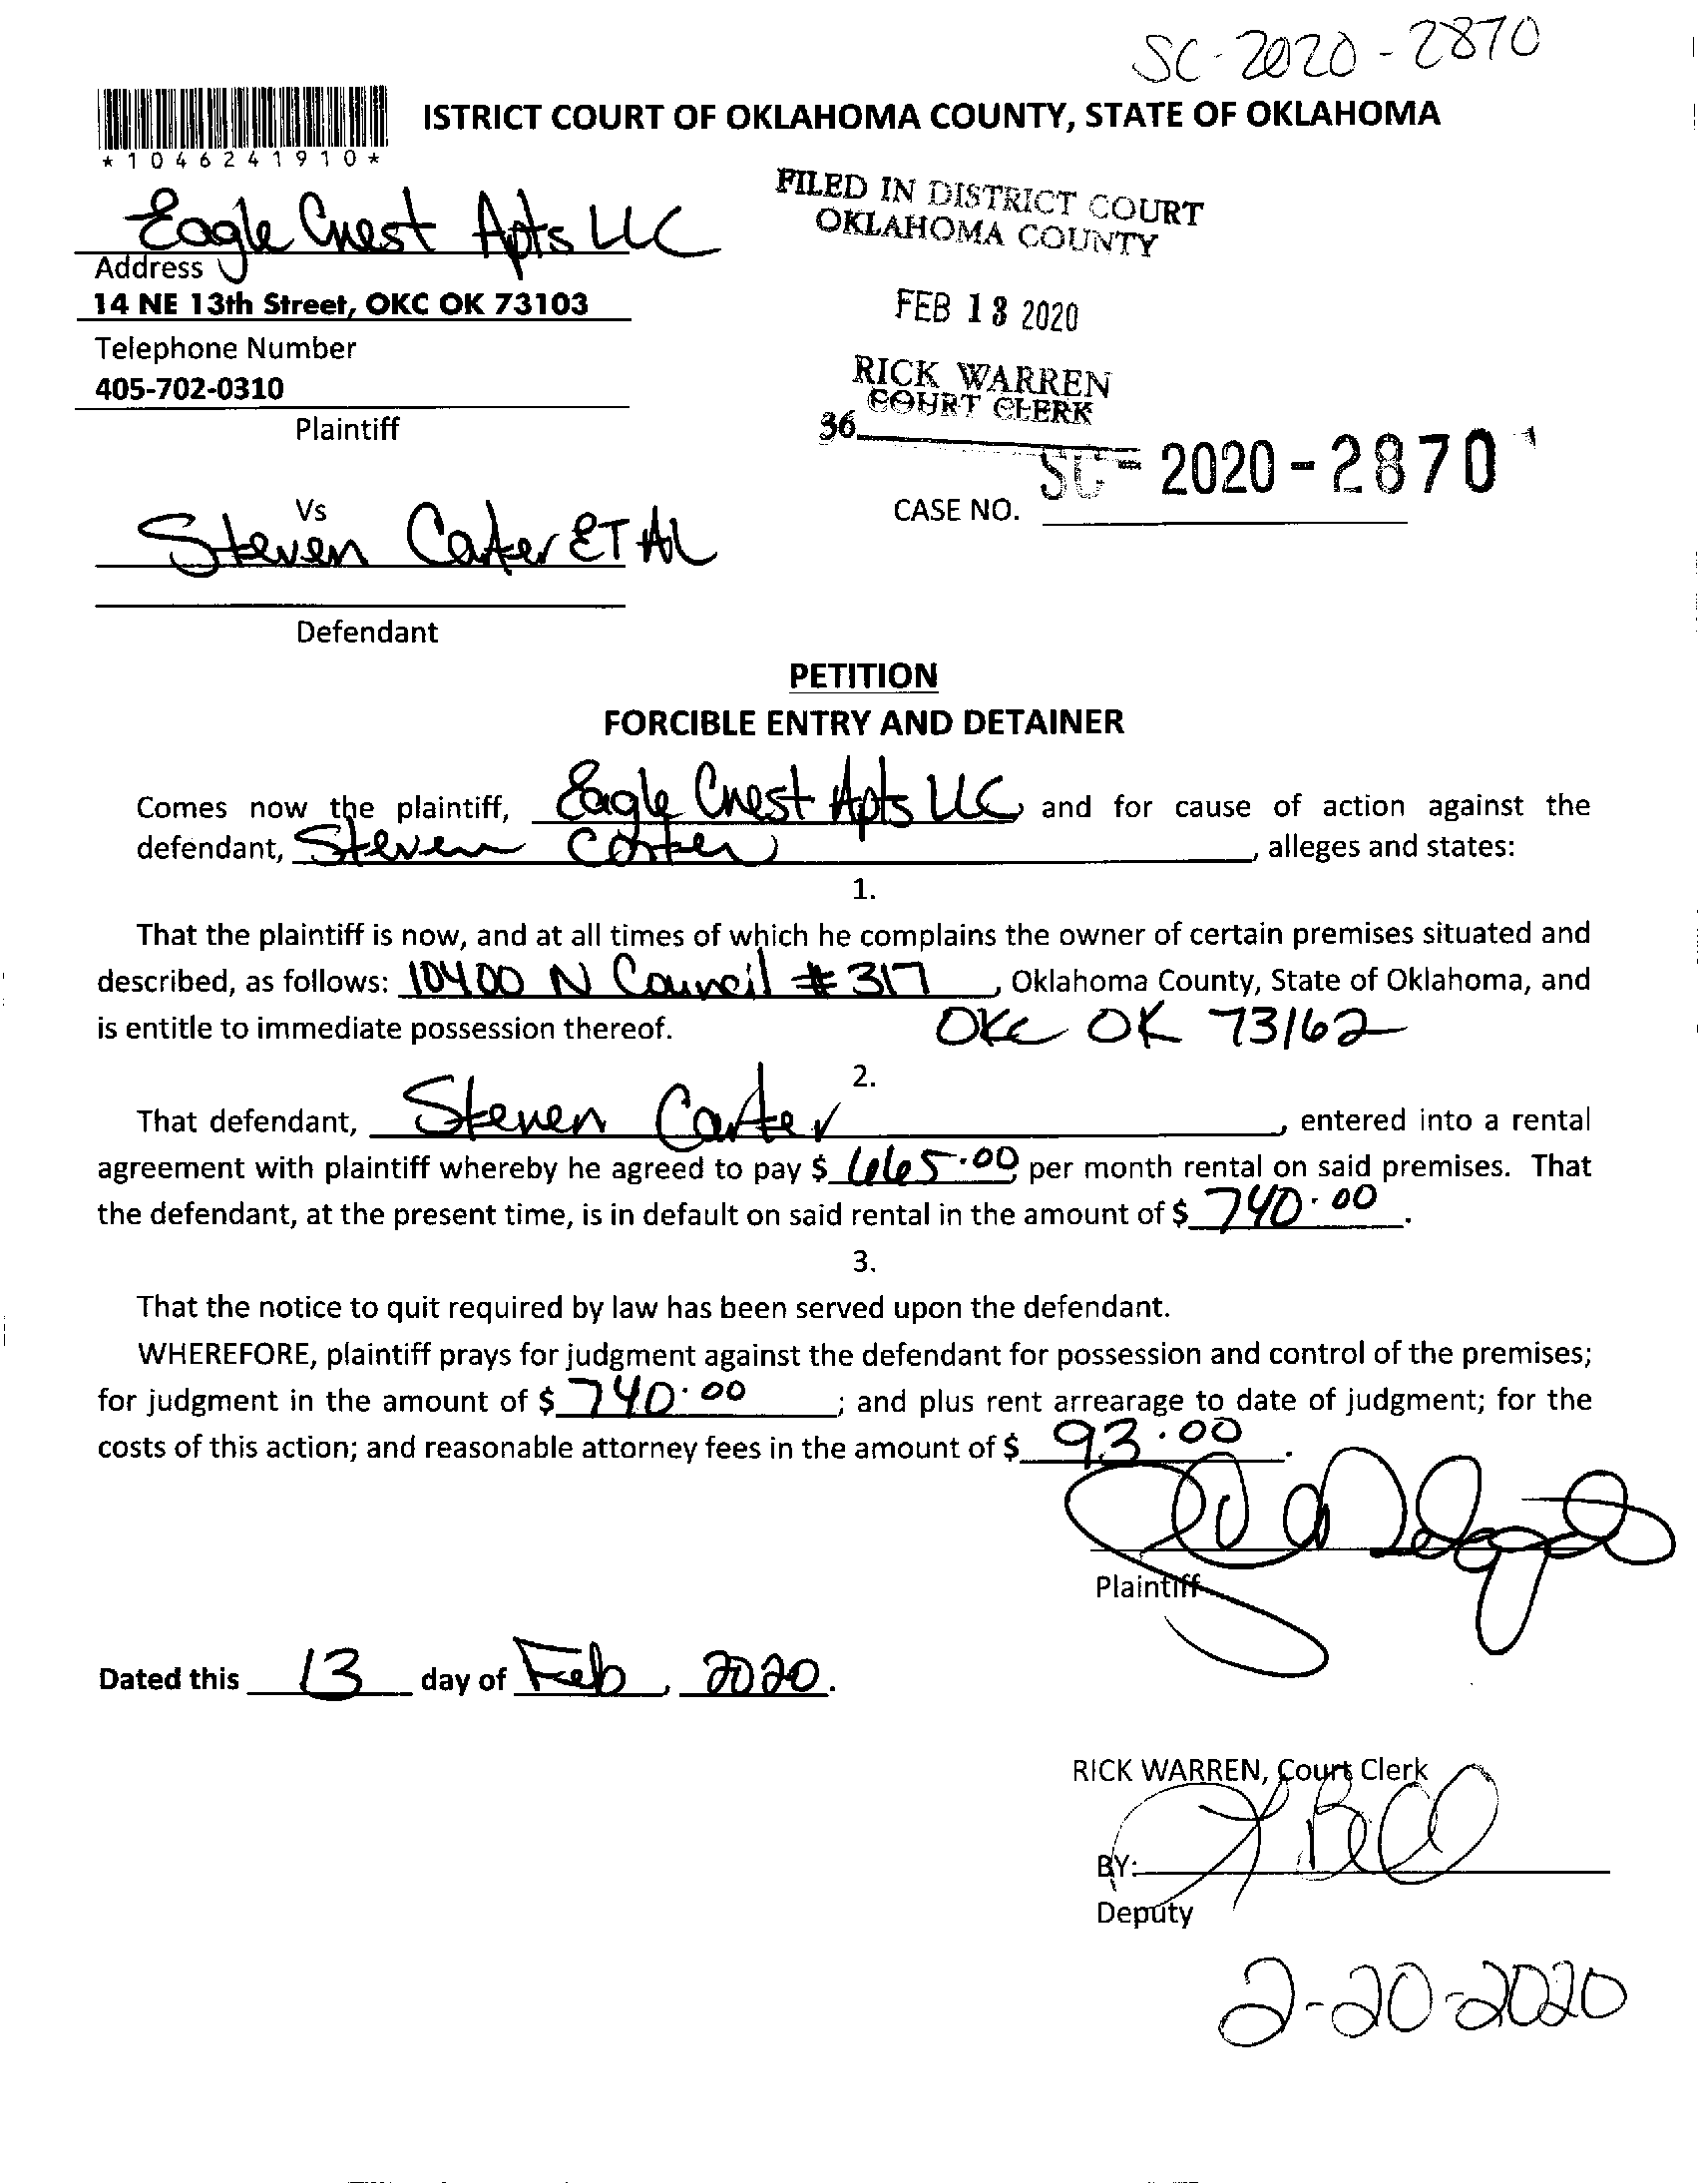 SC-2020-2870
ISTRICT COURT OF OKLAHOMA COUNTY, STATE OF OKLAHOMA
*1046241910*
FILED IN DISTRICT COURT
OKLAHOMA COUNTY
Eagle Crest Apts LLC
Address
14 NE 13th Street, OKC OK 73103
FEB 13 2020
Telephone Number
405-702-0310
RICK WARREN
COURT CLERK
36
Plaintiff
SC-2020-2870
CASE NO.
Vs
Steven Carter ET AL
Defendant
PETITION
FORCIBLE ENTRY AND DETAINER
Comes now the plaintiff, Eagle Crest Apts LLC and for cause of action against the
defendant, Steven Carter, alleges and states:
1.
That the plaintiff is now, and at all times of which he complains the owner of certain premises situated and
described, as follows: 10400 N Council #317, Oklahoma County, State of Oklahoma, and
is entitle to immediate possession thereof. OKC OK 73162
2.
That defendant, Steven Carter, entered into a rental
agreement with plaintiff whereby he agreed to pay $ 665.00 per month rental on said premises. That
the defendant, at the present time, is in default on said rental in the amount of $ 740.00.
3.
That the notice to quit required by law has been served upon the defendant.
WHEREFORE, plaintiff prays for judgment against the defendant for possession and control of the premises;
for judgment in the amount of $ 740.00; and plus rent arrearage to date of judgment; for the
costs of this action; and reasonable attorney fees in the amount of $ 93.00.
Plaintiff
Dated this 13 day of Feb, 2020.
RICK WARREN, Court Clerk
BY:
Deputy
2-20-2020